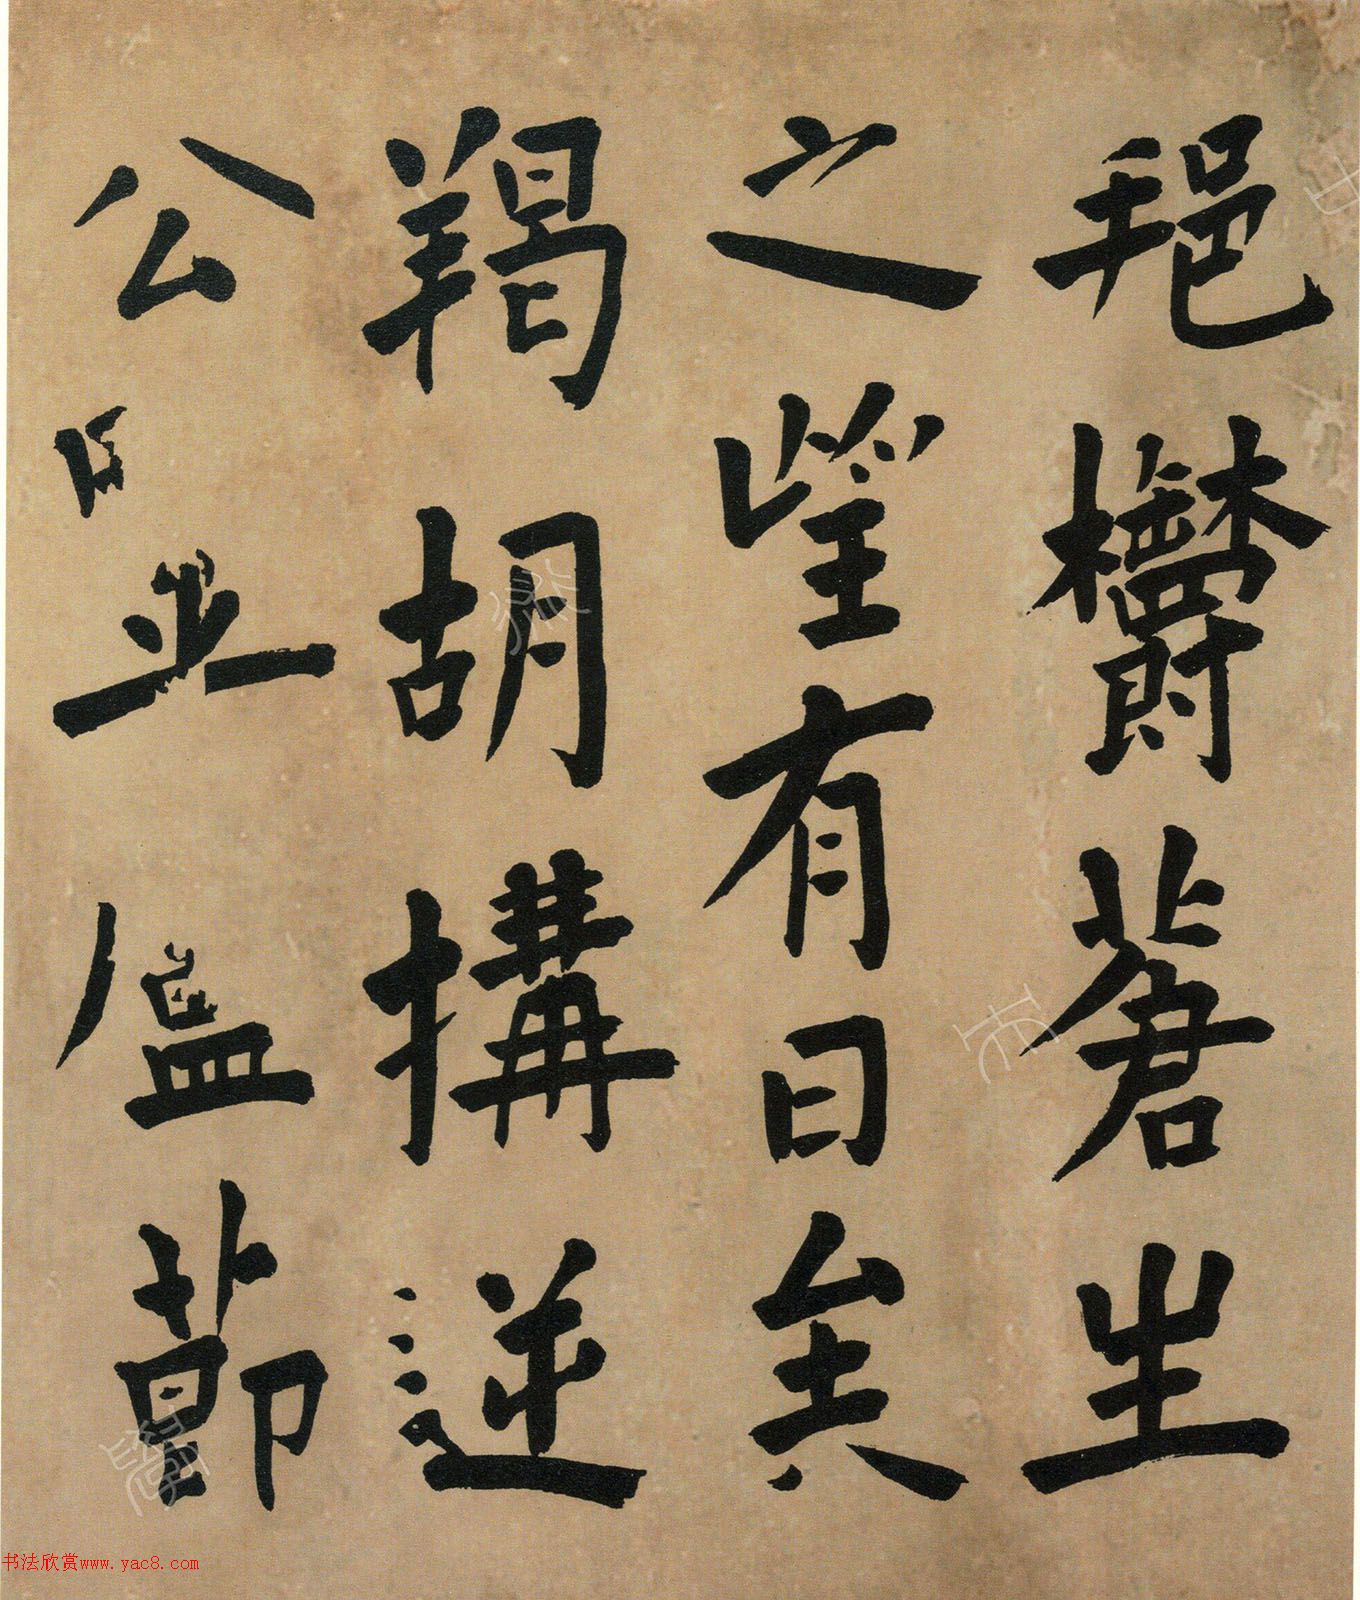 挹欝蒼生
之望有日矣
羯胡搆逆
公
節
书法欣赏www.yac8.com